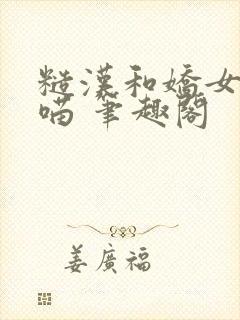 糙漢和嬌女
喵 筆趣閣
姜廣福